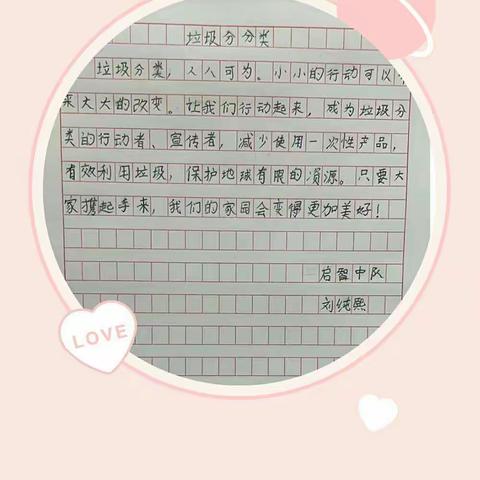 垃圾分分类
垃圾分类，人人可为。小小的行动可以
来大大的改变。让我们行动起来，成为垃圾分
类的行动者、宣传者，减少使用一次性产品，
有效利用垃圾，保护地球有限的资源。只要大
家携起手来，我们的家园会变得更加美好！
启智中队
刘纯熙
LOVE